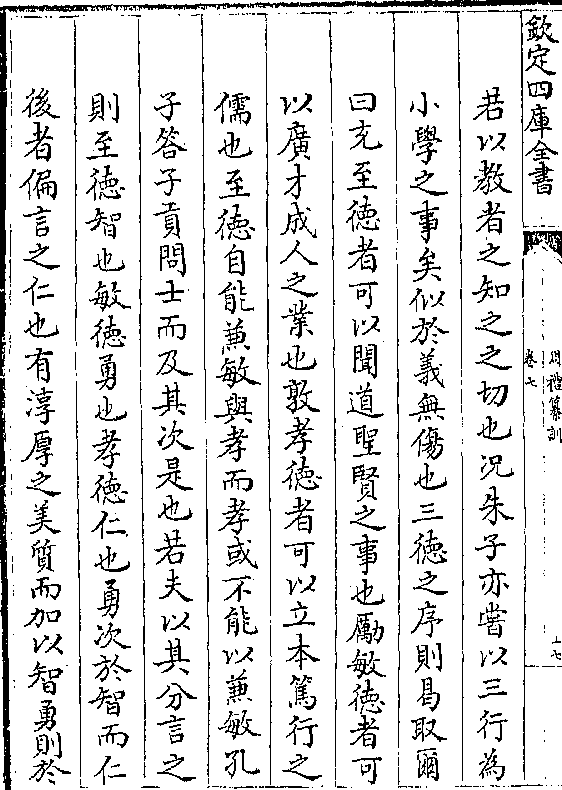 欽定四庫全書
周禮纂訓
卷七
十七
若以教者之知之之切也況朱子亦嘗以三行為
小學之事矣似於義無傷也三徳之序則曷取爾
曰充至徳者可以聞道聖賢之事也勵敏徳者可
以廣才成人之業也敦孝徳者可以立本篤行之
儒也至徳自能兼敏與孝而孝或不能以兼敏孔
子答子貢問士而及其次是也若夫以其分言之
則至徳智也敏徳勇也孝徳仁也勇次於智而仁
後者偏言之仁也有淳厚之美質而加以智勇則於